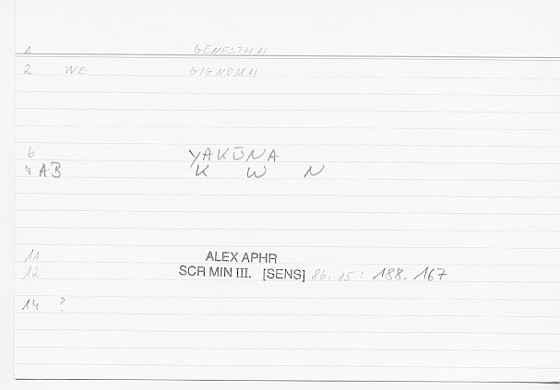 1 GENESTHAI
2 WE GIGNOMAI
6 YAKŪNA
7 AB K W N
11 ALEX APHR
12 SCR MIN III. [SENS] 86.15: 188.167
14 ?